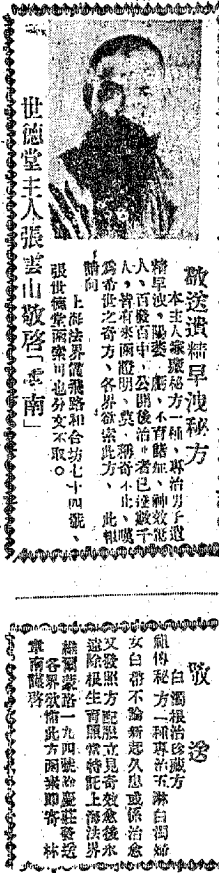 敬送遺精早洩秘方
本主人家藏秘方一種、專治男子遺
精早洩、陽萎、不育諸症、神效
人、百發百中、公開後治者已達數千
人、皆有來函證明、莫稱奇不止、
為希世之奇方、各界欲索此方、此
上海法界霞飛路和合坊七十四號、
張世德堂函索可也分文不取。
世德堂主人張雲山敬啓「雲南」
敬送
白濁根治珍藏方
祖傳秘方一種專治五淋白濁婦
女白帶不論新起久患或係治愈
又發照方配服立見奇效愈後永
遠除根生育照常特記上海法界
維爾蒙路一九四號慶莊發送
各界欲備此方函索即寄 林
章南謹啓